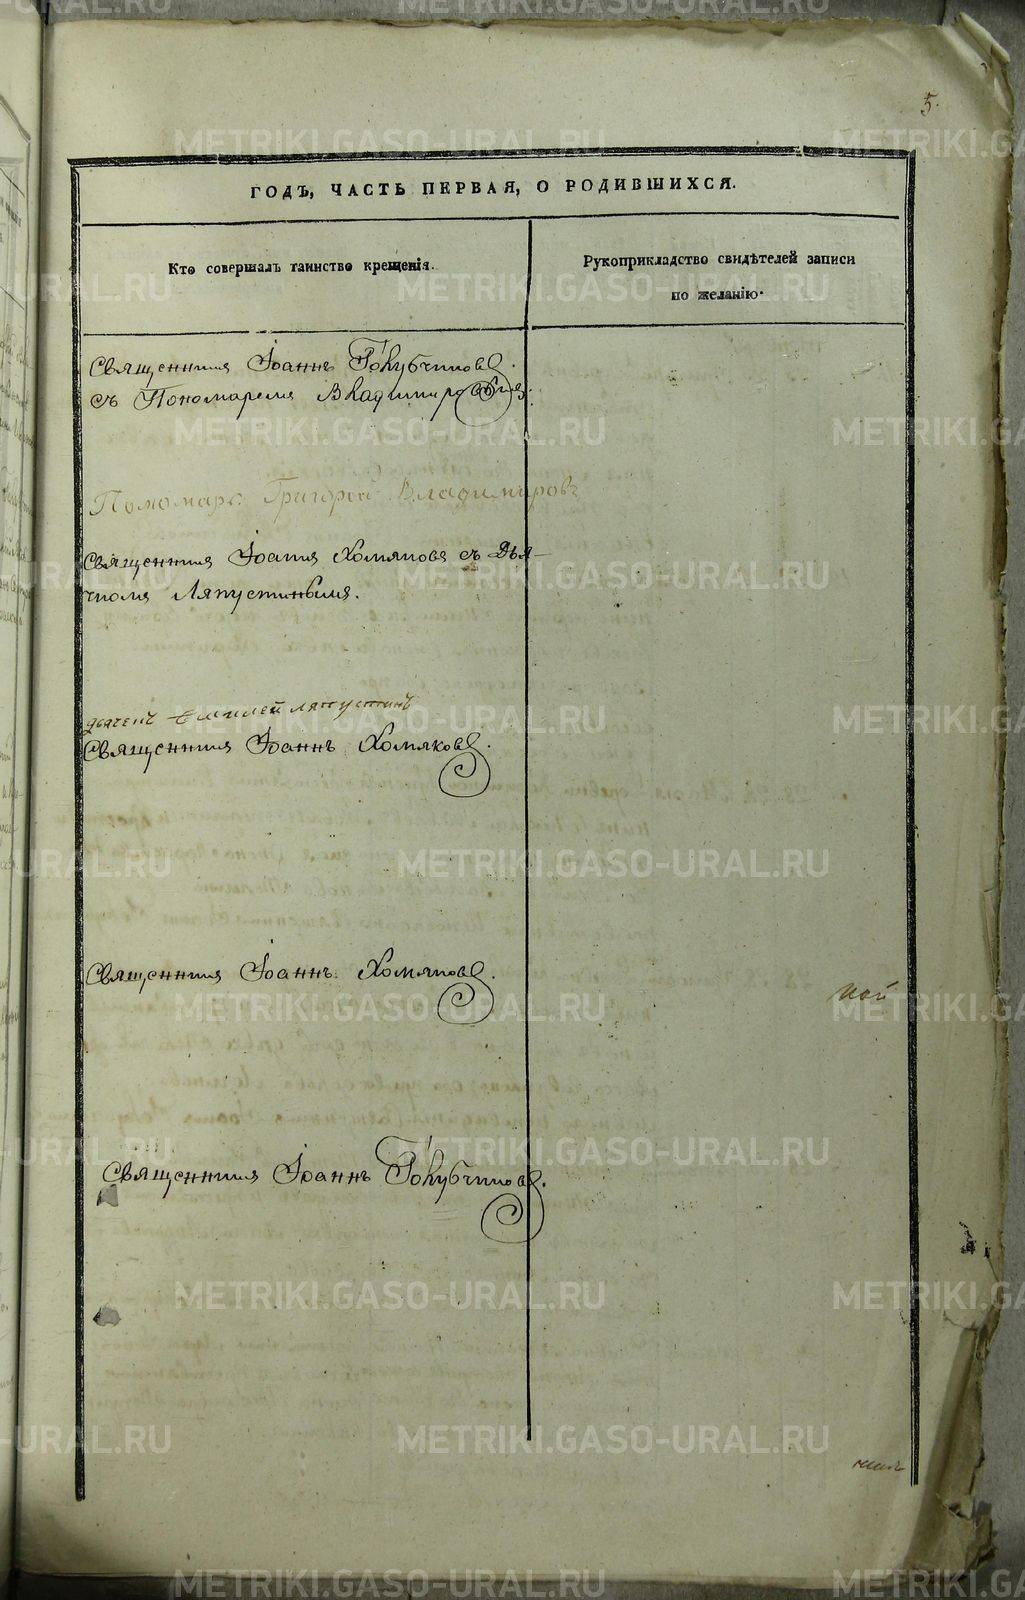 5.
ГОДЪ, ЧАСТЬ ПЕРВАЯ, О РОДИВШИХСЯ.
Кто совершалъ таинство крещенія.
Рукоприкладство свидѣтелей записи
по желанію.
Священникъ Іоаннъ Голубчиковъ.
съ Пономаремъ Владимировымъ.
Пономарь Григорей Владимировъ
Священникъ Іоаннъ Хомяковъ съ Дья-
чкомъ Ляпустинымъ.
дьячекъ ляпустинъ
Священникъ Іоаннъ Хомяковъ.
Священникъ Іоаннъ Хомяковъ.
кой
Священникъ Іоаннъ Голубчиковъ.
METRIKI.GASO-URAL.RU